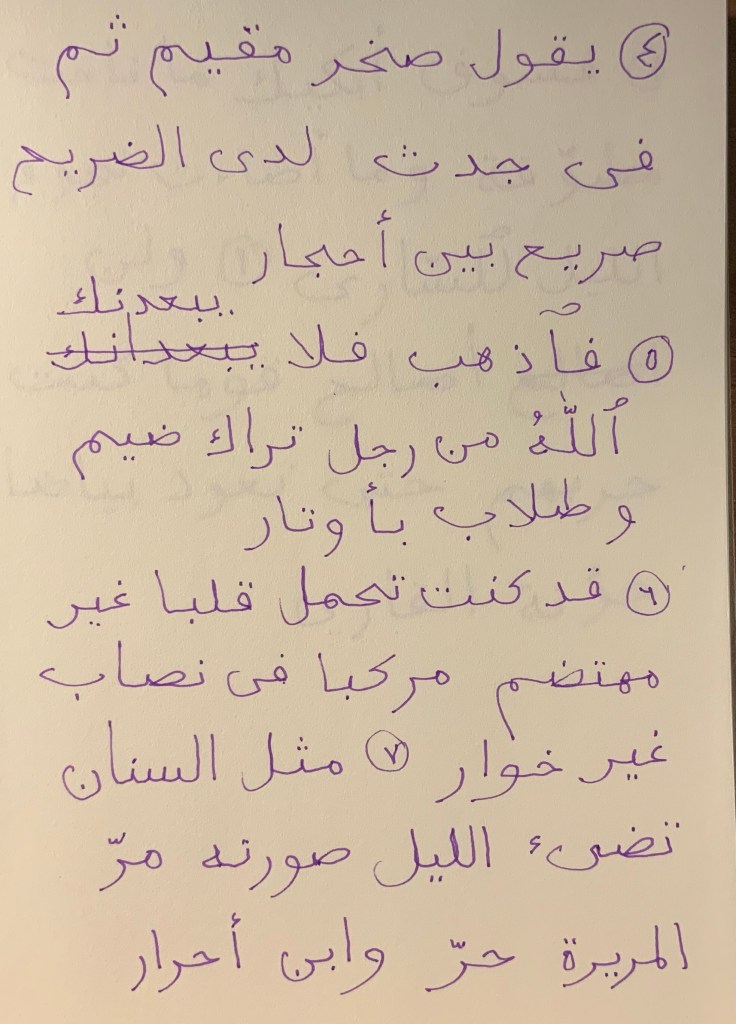 ٤ يقول صخر مقيم ثم
فى جدث لدى الضريح
صريع بين أحجار
يبعدنك
٥ فآذهب فلا يبعدانك
ٱللّٰهُ من رجل تراك ضيم
و طلاب بأوتار
٦ قد كنت تحمل قلبا غير
مهتضم مركبا فى نصاب
غير خوار ٧ مثل السنان
تضىء الليل صورته مرّ
المريرة حرّ وابن أحرار